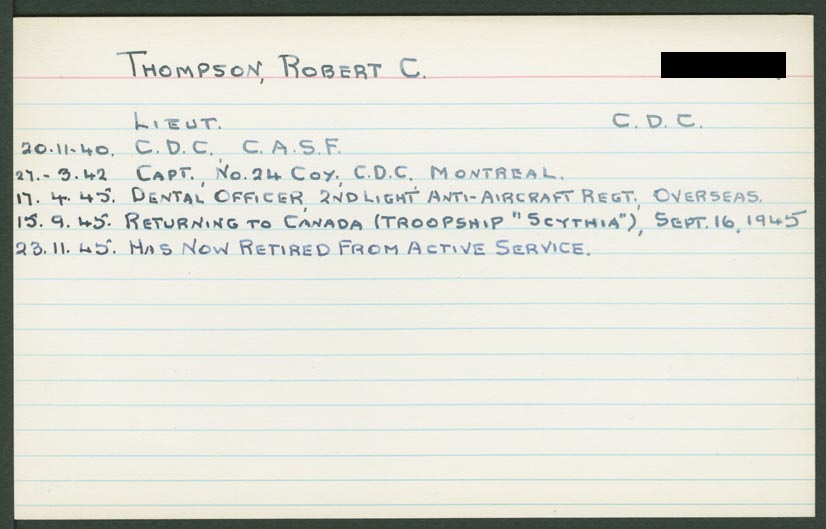 THOMPSON, ROBERT C.
LIEUT. C. D. C.
20.11.40. C.D.C., C.A.S.F.
27.-3.42 CAPT., No. 24 COY., C.D.C. MONTREAL.
17. 4. 45. DENTAL OFFICER, 2ND LIGHT ANTI-AIRCRAFT REGT., OVERSEAS.
15. 9. 45. RETURNING TO CANADA (TROOPSHIP "SCYTHIA"), SEPT. 16, 1945
23. 11. 45. HAS NOW RETIRED FROM ACTIVE SERVICE.